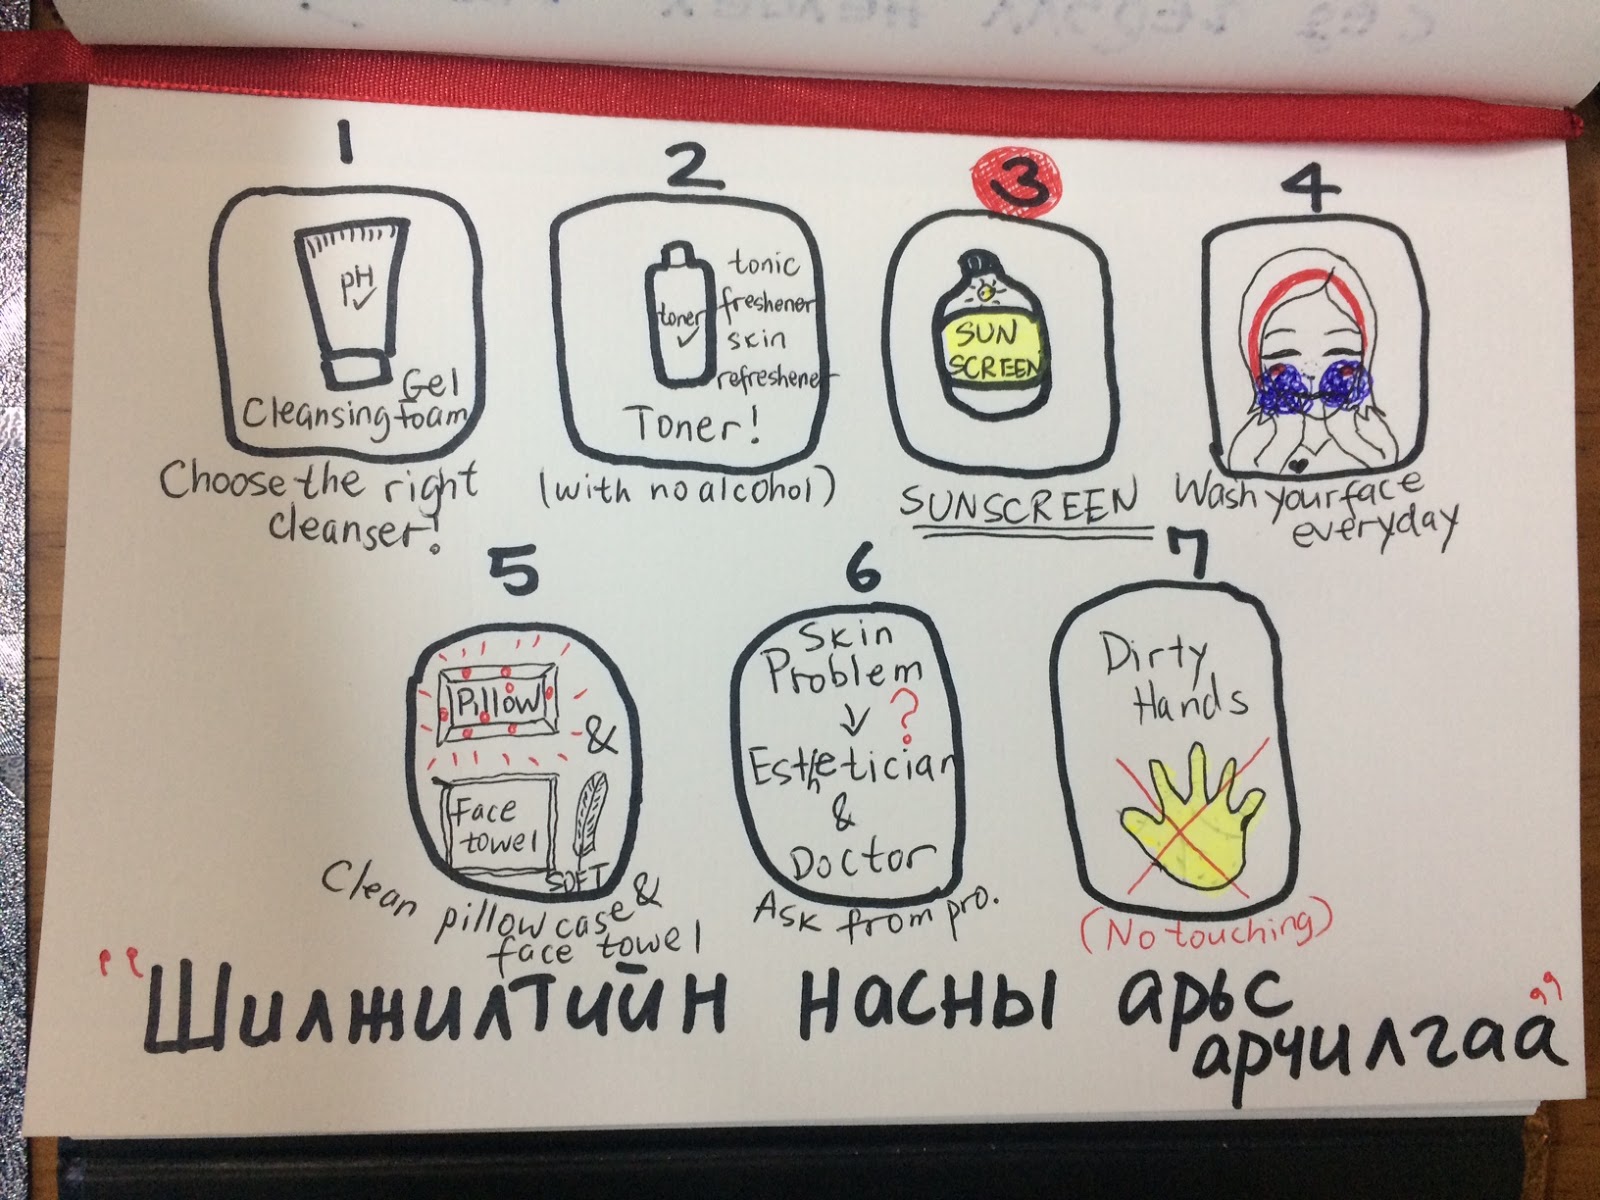 1
pH
Gel
Cleansing foam
Choose the right
cleanser!
2
toner
tonic
freshener
skin
refreshener
Toner!
(with no alcohol)
3
SUN
SCREEN
SUNSCREEN
4
Wash your face
everyday
5
Pillow
&
Face
towel
SOFT
Clean pillowcase &
face towel
6
Skin
Problem
?
Esthetician
&
Doctor
Ask from pro.
7
Dirty
Hands
(No touching)
"Шилжилтийн насны арьс
арчилгаа"